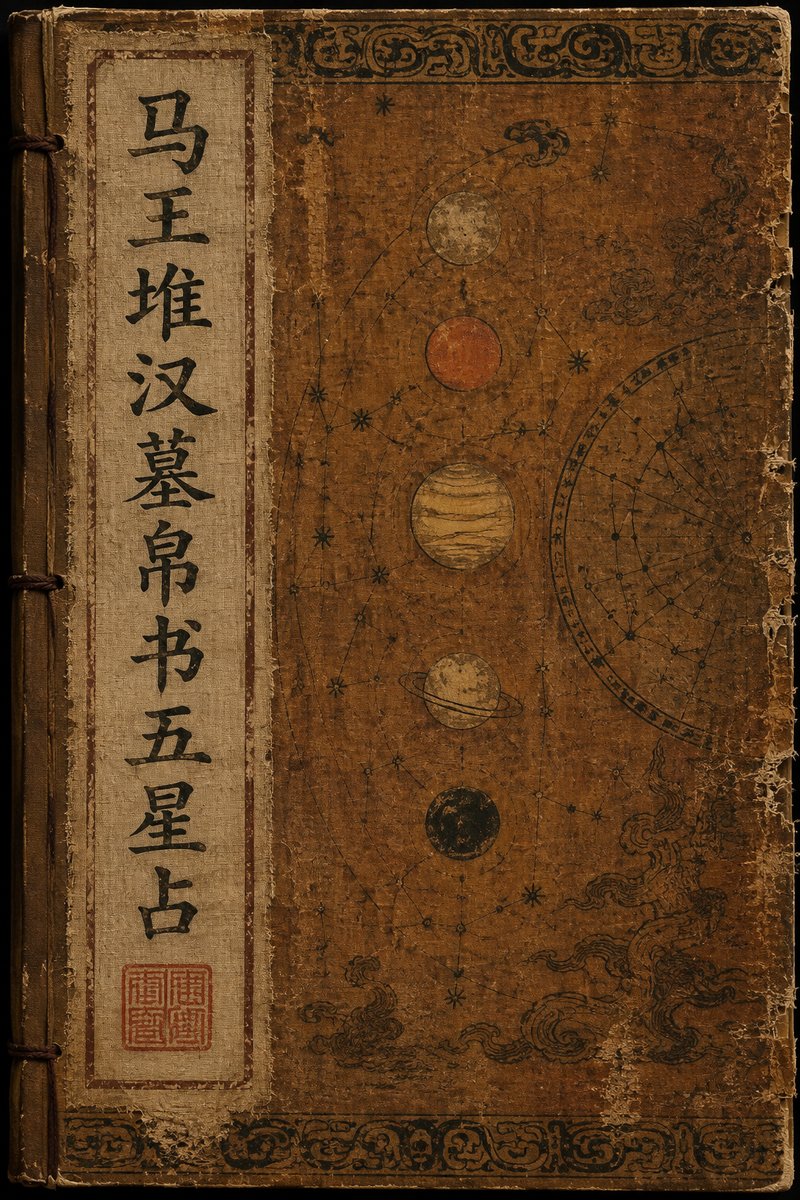 马王堆汉墓帛书五星占